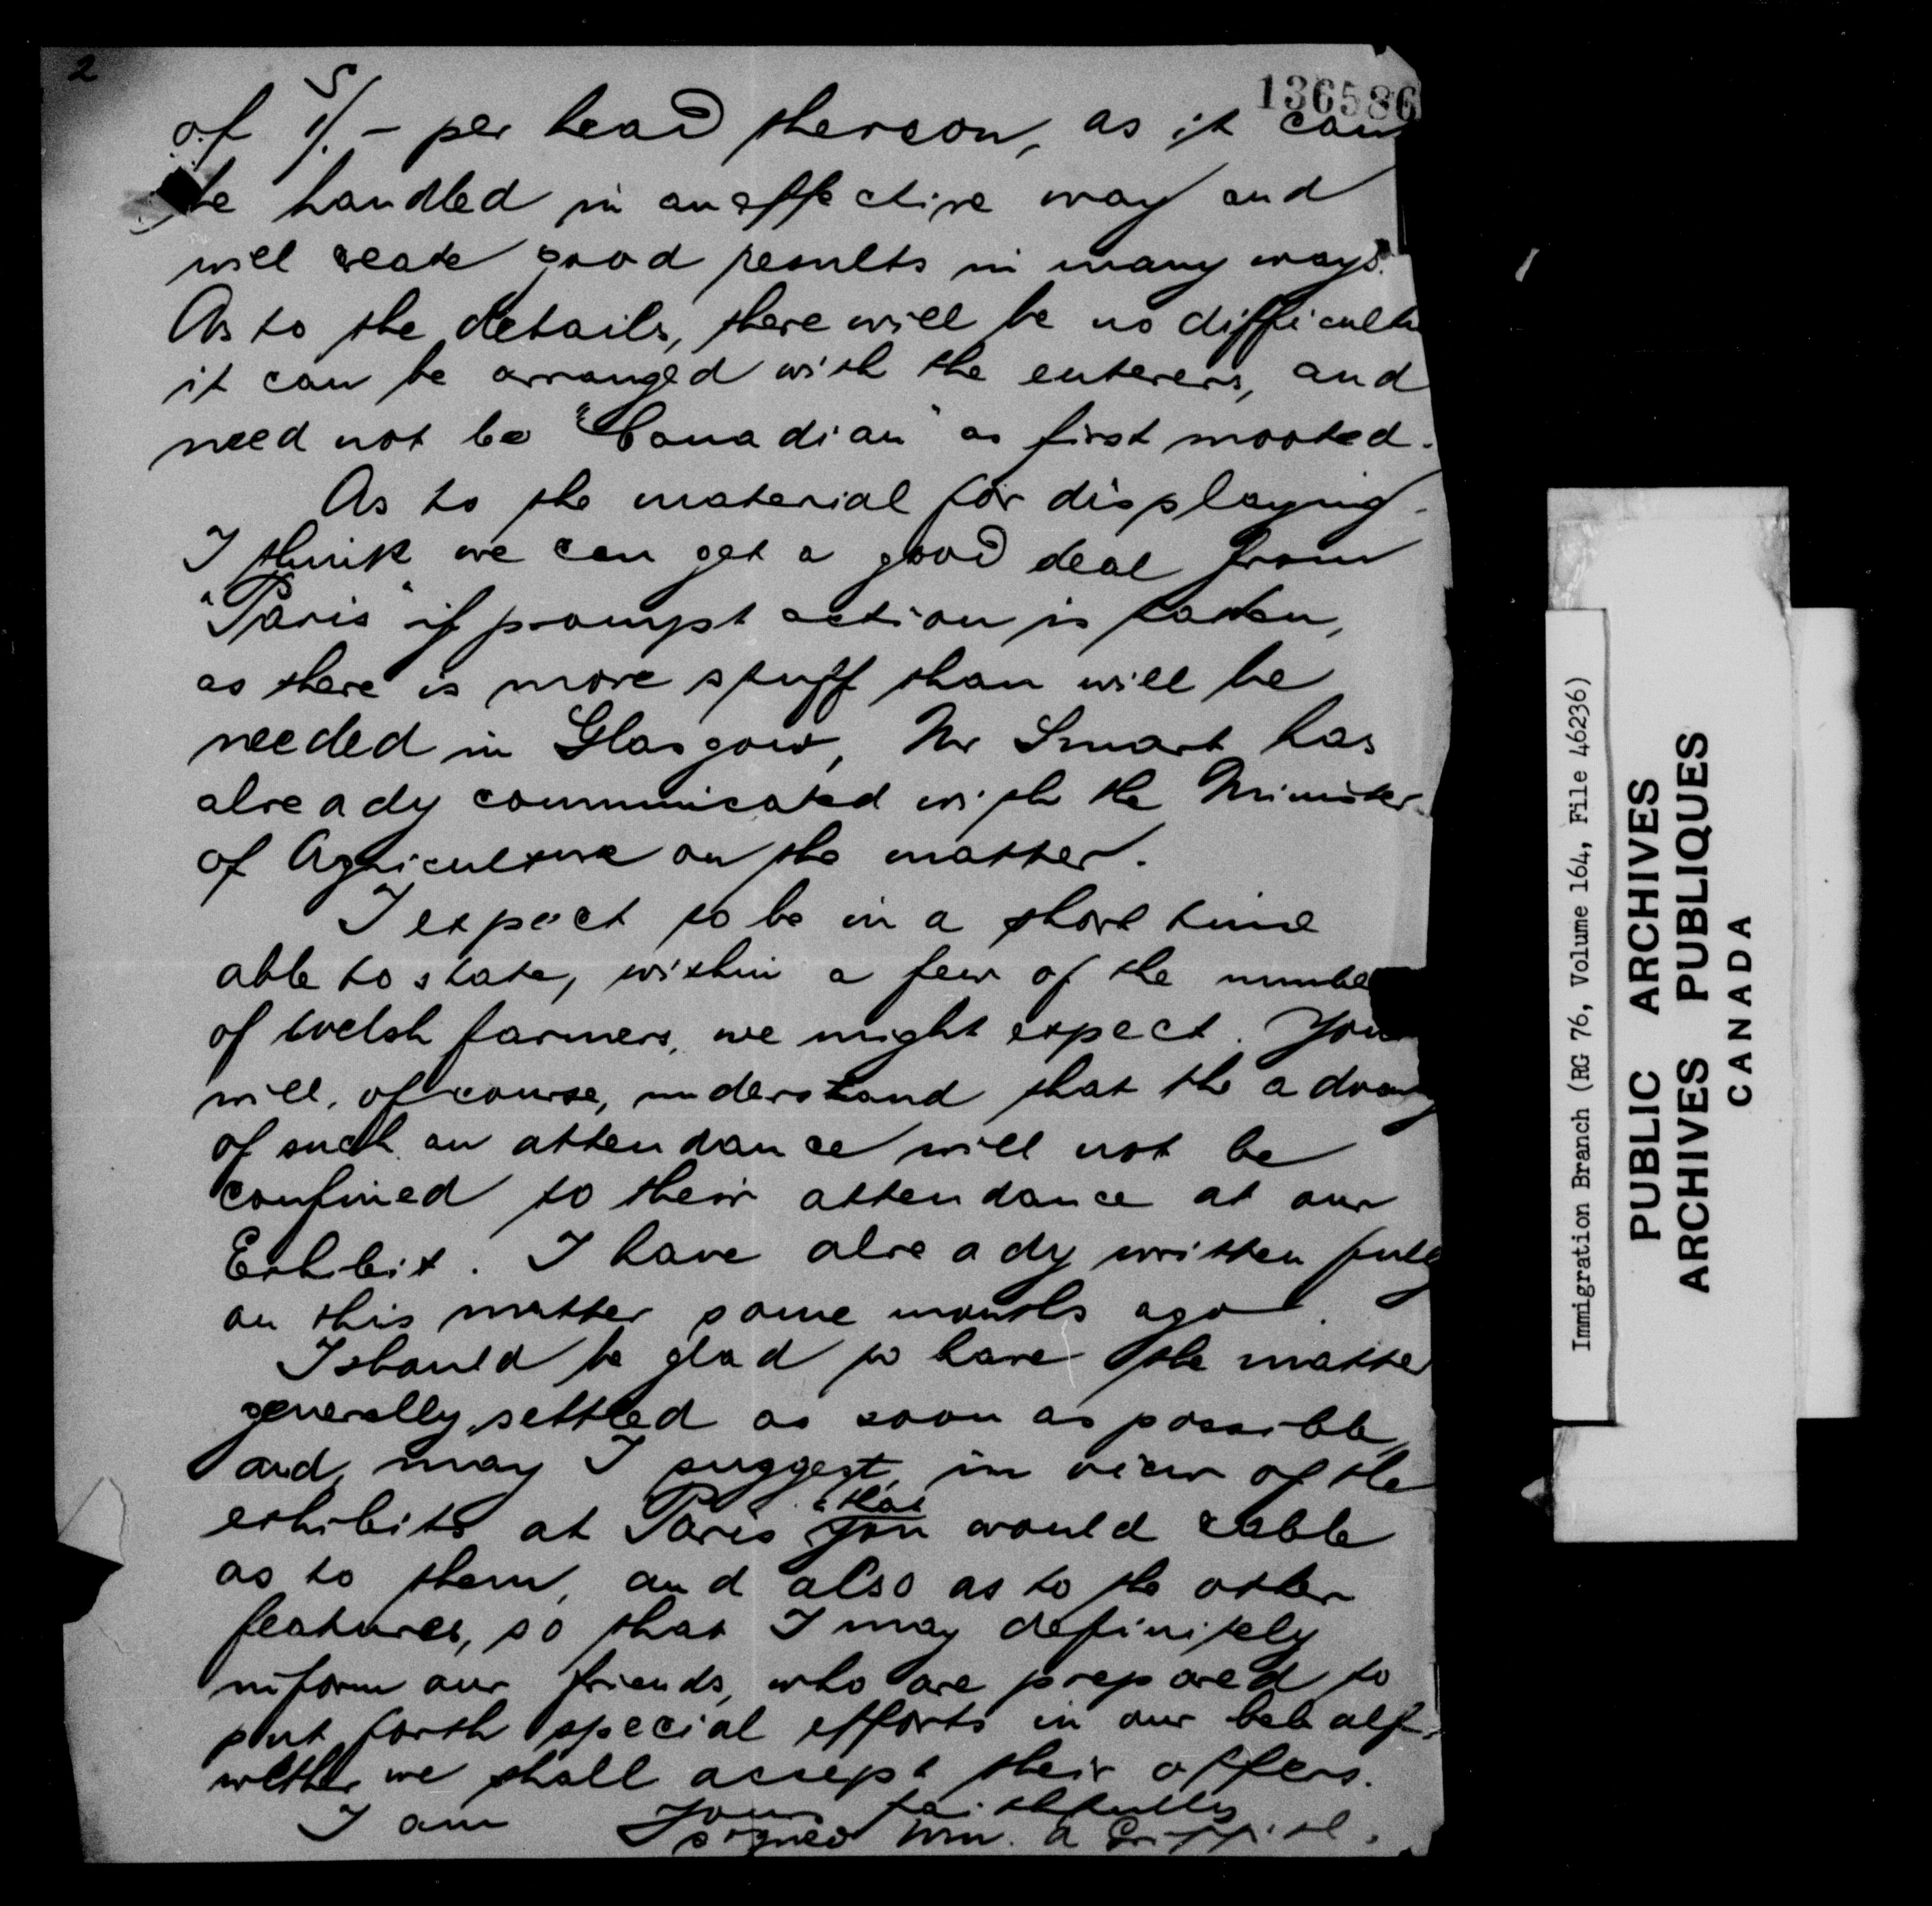 2
136586
of 5/- per head thereon, as it can
be handled in an effective way and
will create good results in many ways.
As to the details, there will be no difficulty
it can be arranged with the enterers, and
need not be "Canadian" as first mooted.
As to the material for displaying
I think we can get a good deal from
"Paris" if prompt action is taken,
as there is more stuff than will be
needed in Glasgow, Mr Smart has
already communicated with the Minister
of Agriculture on the matter.
I expect to be in a short time
able to state, within a few of the number
of Welsh farmers, we might expect. You
will, of course, understand that the advan
of such an attendance will not be
confined to their attendance at our
Exhibit. I have already written fully
on this matter some months ago.
I should be glad to have the matter
generally settled as soon as possible,
and, may I suggest, in view of the
exhibits at Paris that you would cable
as to them, and also as to the other
features, so that I may definitely
inform our friends, who are prepared to
put forth special efforts in our behalf,
wether we shall accept their offers.
I am Yours faithfully
signed Wm. A Griffith.
Immigration Branch (RG 76, Volume 164, File 46236)
PUBLIC ARCHIVES
ARCHIVES PUBLIQUES
CANADA